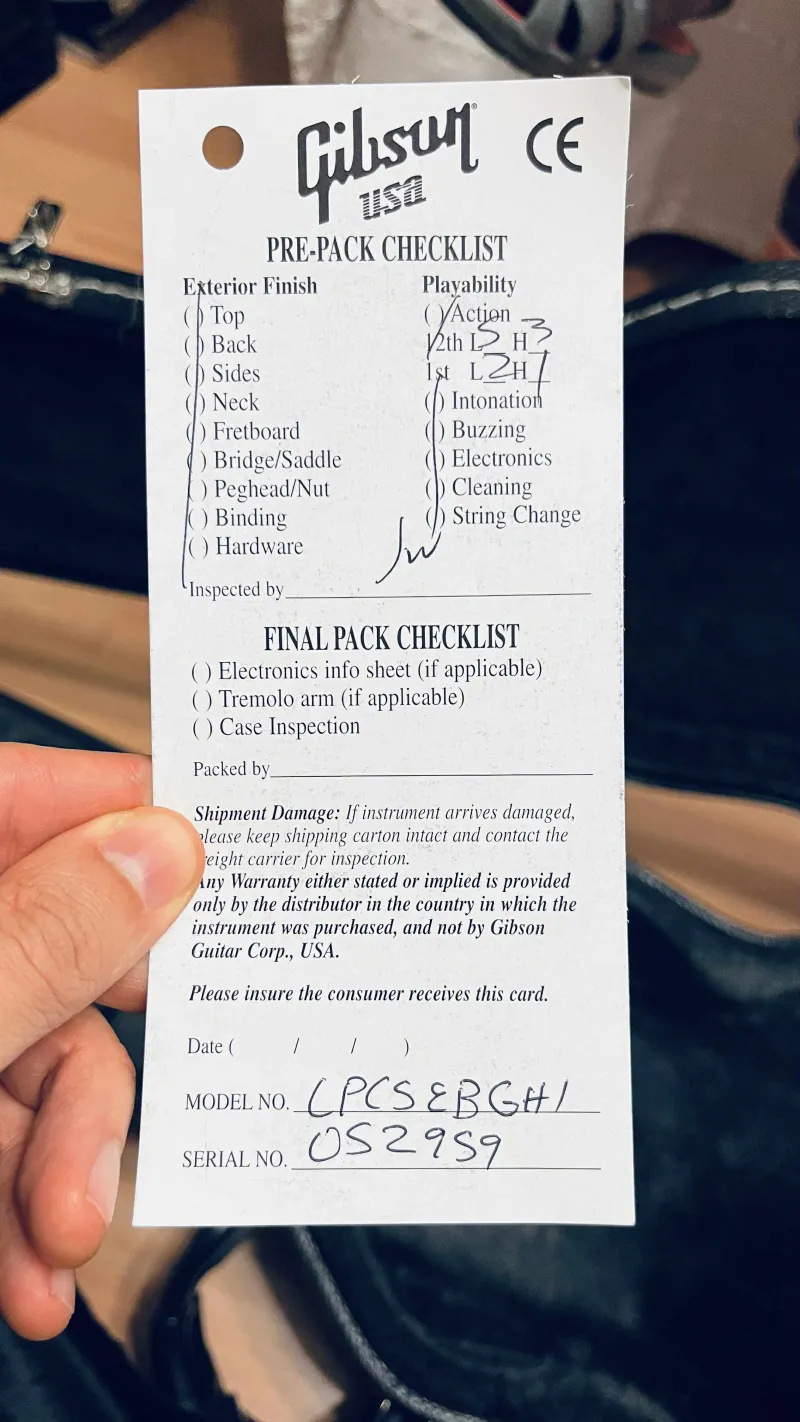 Gibson
USA
CE
PRE-PACK CHECKLIST
Exterior Finish
( ) Top
( ) Back
( ) Sides
( ) Neck
( ) Fretboard
( ) Bridge/Saddle
( ) Peghead/Nut
( ) Binding
( ) Hardware
Playability
( ) Action
12th L 5 H 3
1st L 2 H 1
( ) Intonation
( ) Buzzing
( ) Electronics
( ) Cleaning
( ) String Change
Inspected by
FINAL PACK CHECKLIST
( ) Electronics info sheet (if applicable)
( ) Tremolo arm (if applicable)
( ) Case Inspection
Packed by
Shipment Damage: If instrument arrives damaged,
please keep shipping carton intact and contact the
freight carrier for inspection.
Any Warranty either stated or implied is provided
only by the distributor in the country in which the
instrument was purchased, and not by Gibson
Guitar Corp., USA.
Please insure the consumer receives this card.
Date ( / / )
MODEL NO. LPCSEBGH1
SERIAL NO. 052959